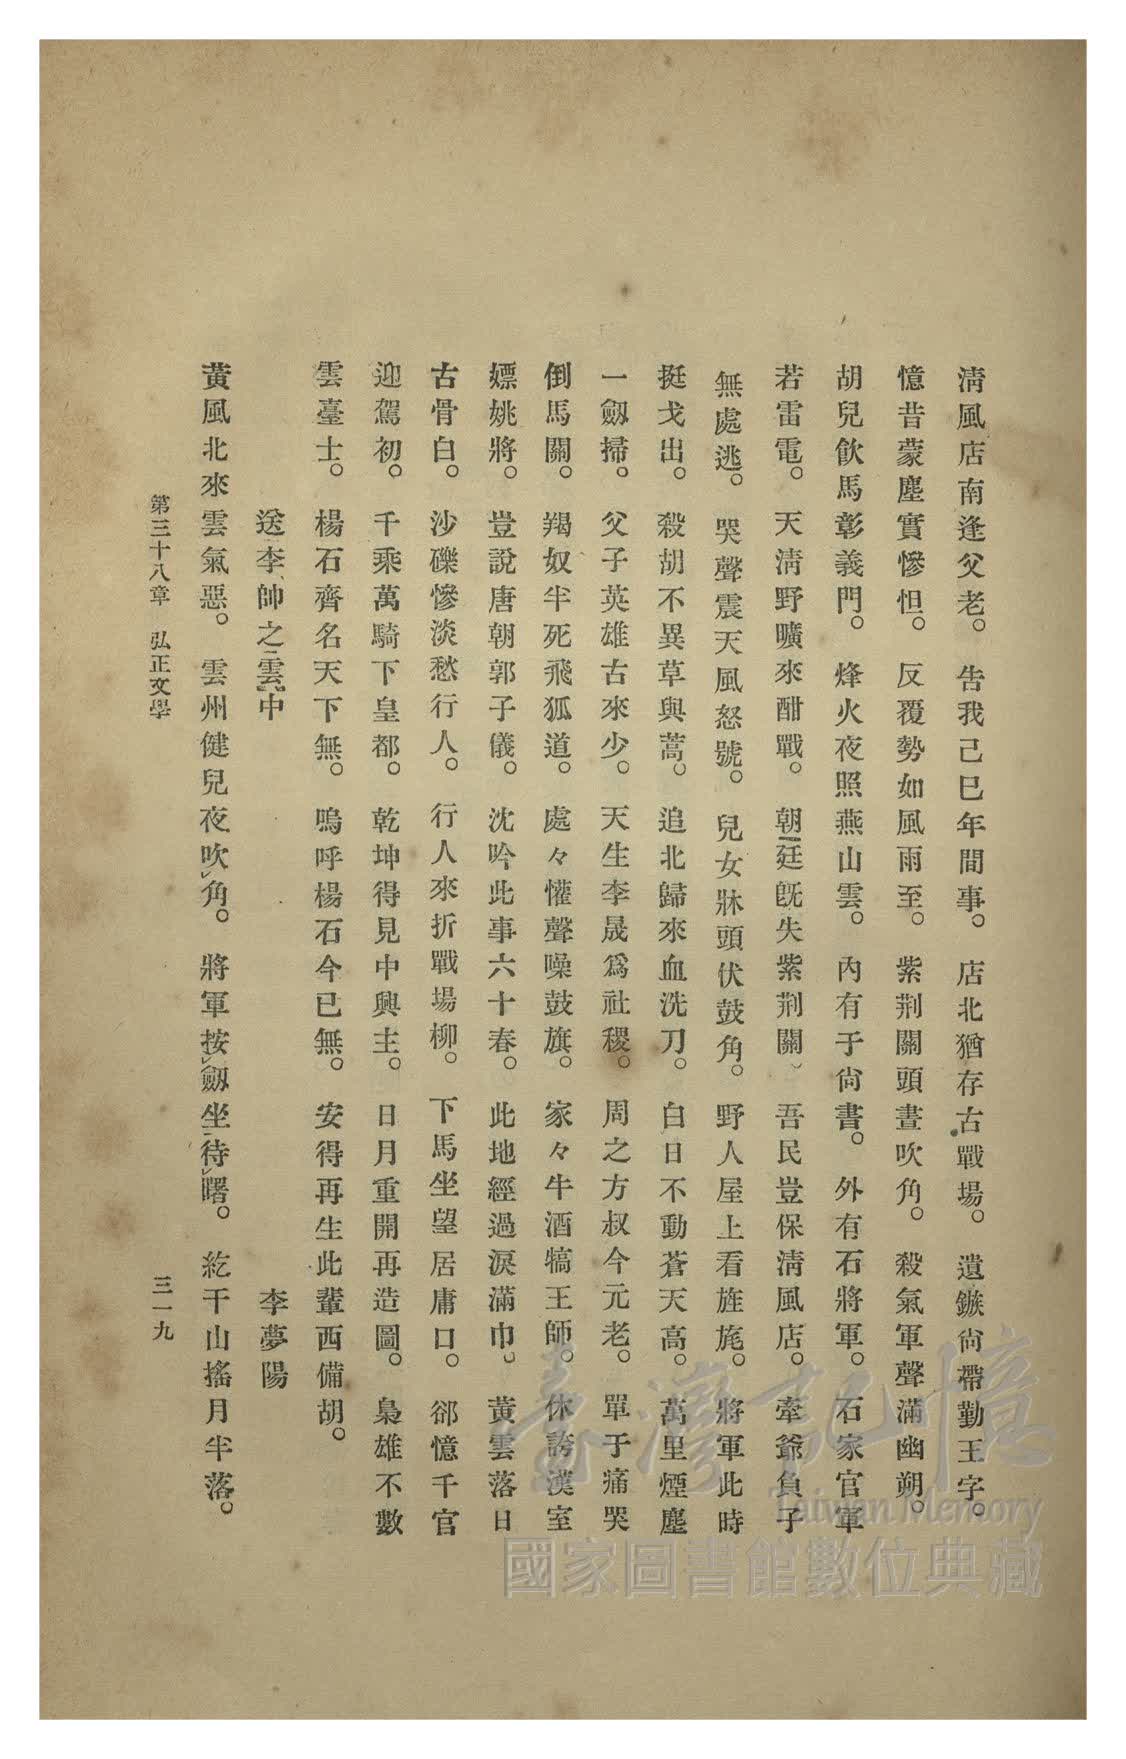 淸風店南逢父老。告我己巳年間事。店北猶存古戰場。遺鏃尙帶勤王字。
憶昔蒙塵實慘怛。反覆勢如風雨至。紫荆關頭晝吹角。殺氣軍聲滿幽朔。
胡兒飮馬彰義門。烽火夜照燕山雲。內有于尙書。外有石將軍。石家官軍
若雷電。天淸野曠來酣戰。朝廷旣失紫荆關、吾民豈保淸風店。牽爺負子
無處逃。哭聲震天風怒號。兒女牀頭伏鼓角。野人屋上看旌旄。將軍此時
挺戈出。殺胡不異草與蒿。追北歸來血洗刀。白日不動蒼天高。萬里煙塵
一劔掃。父子英雄古來少。天生李晟爲社稷。周之方叔今元老。單于痛哭
倒馬關。羯奴半死飛狐道。處々懽聲噪鼓旗。家々牛酒犒王師。休誇漢室
嫖姚將。豈說唐朝郭子儀。沈吟此事六十春。此地經過淚滿巾。黃雲落日
古骨白。沙礫慘淡愁行人。行人來折戰場柳。下馬坐望居庸口。郤憶千官
迎駕初。千乘萬騎下皇都。乾坤得見中興主。日月重開再造圖。梟雄不數
雲臺士。楊石齊名天下無。嗚呼楊石今已無。安得再生此輩西備胡。
送李帥之雲中 李夢陽
黃風北來雲氣惡。雲州健兒夜吹角。將軍按劔坐待曙。紇干山搖月半落。
第三十八章 弘正文學 三一九
臺灣記憶
Taiwan Memory
國家圖書館數位典藏